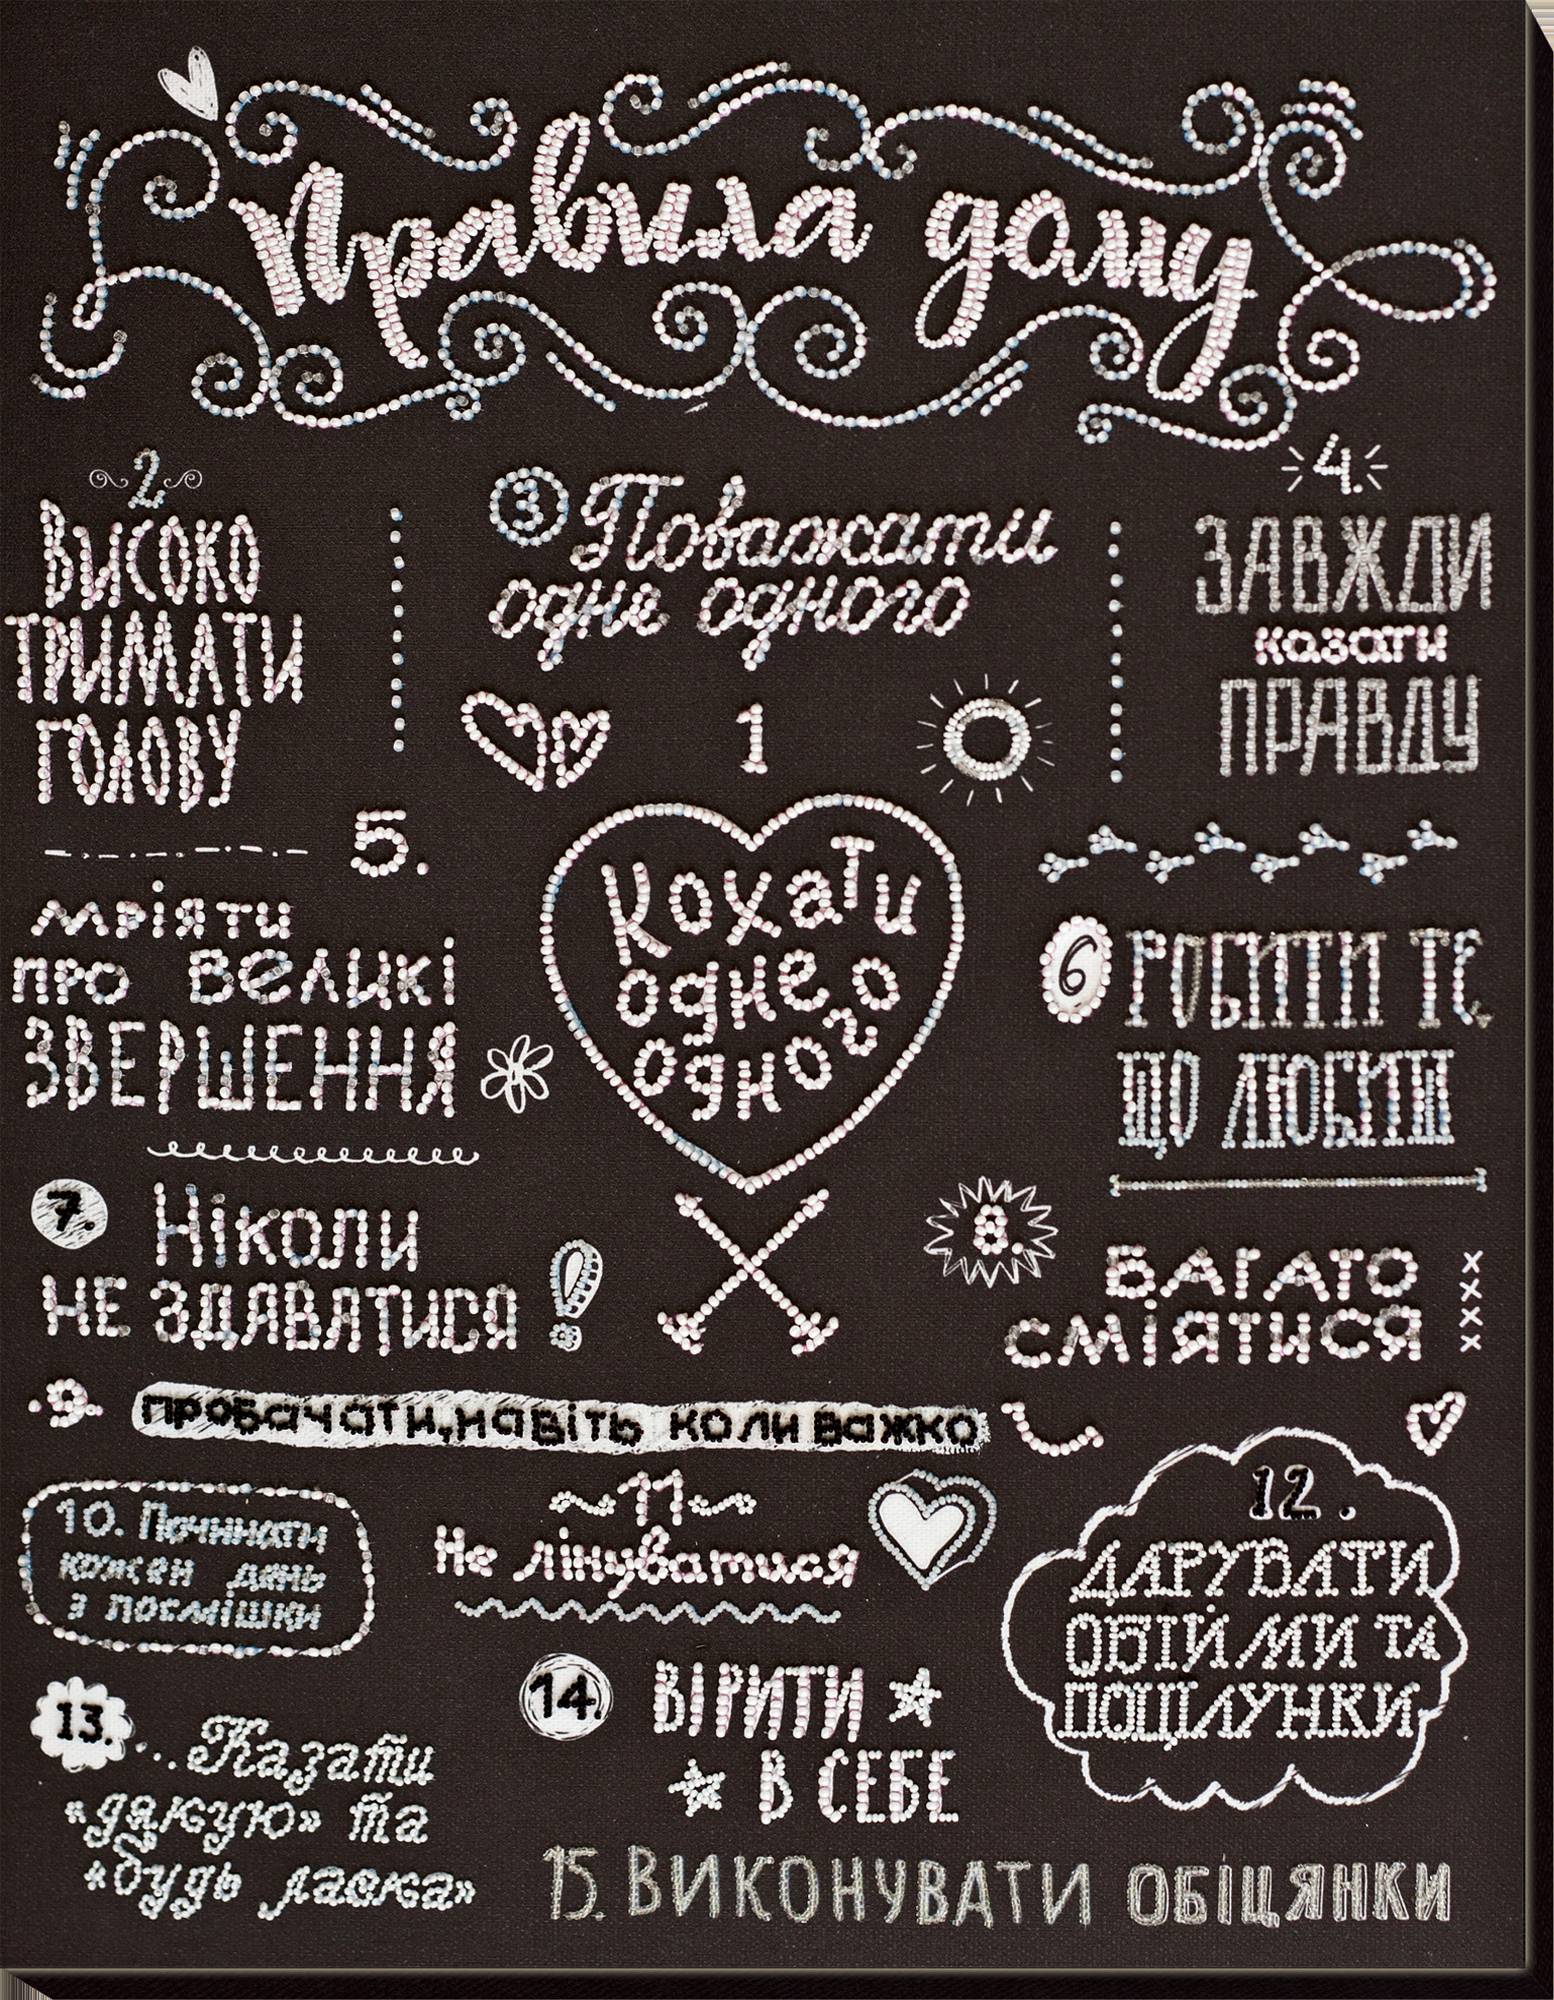 Правила дому
2
Високо
тримати
голову
3 Поважати
одне одного
4.
ЗАВЖДИ
казати
ПРАВДУ
1
Кохати
одне
одного
5.
мріяти
про великі
ЗВЕРШЕННЯ
6 РОБИТИ ТЕ,
ЩО ЛЮБИШ
7. Ніколи
НЕ ЗДАВАТИСЯ
8. БАГАТО
СМІЯТИСЯ
9. пробачати, навіть коли важко
10. Починати
кожен день
з посмішки
11
Не лінуватися
12.
ДАРУВАТИ
ОБІЙМИ ТА
ПОЦІЛУНКИ
13. ...Казати
«дякую» та
«будь ласка»
14. ВІРИТИ
В СЕБЕ
15. ВИКОНУВАТИ ОБІЦЯНКИ